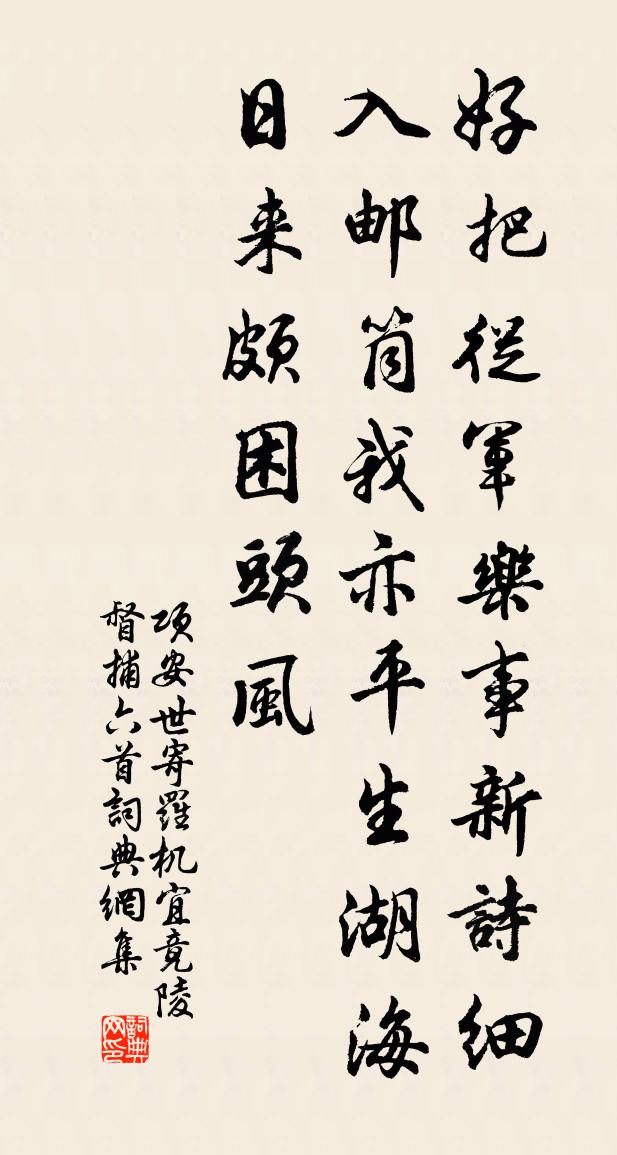 好把從軍樂事新詩細
入邮筒我亦平生湖海
日来頗困頭風
项安世寄羅机宜竟陵
督捕六首詞典網集
詞典网印